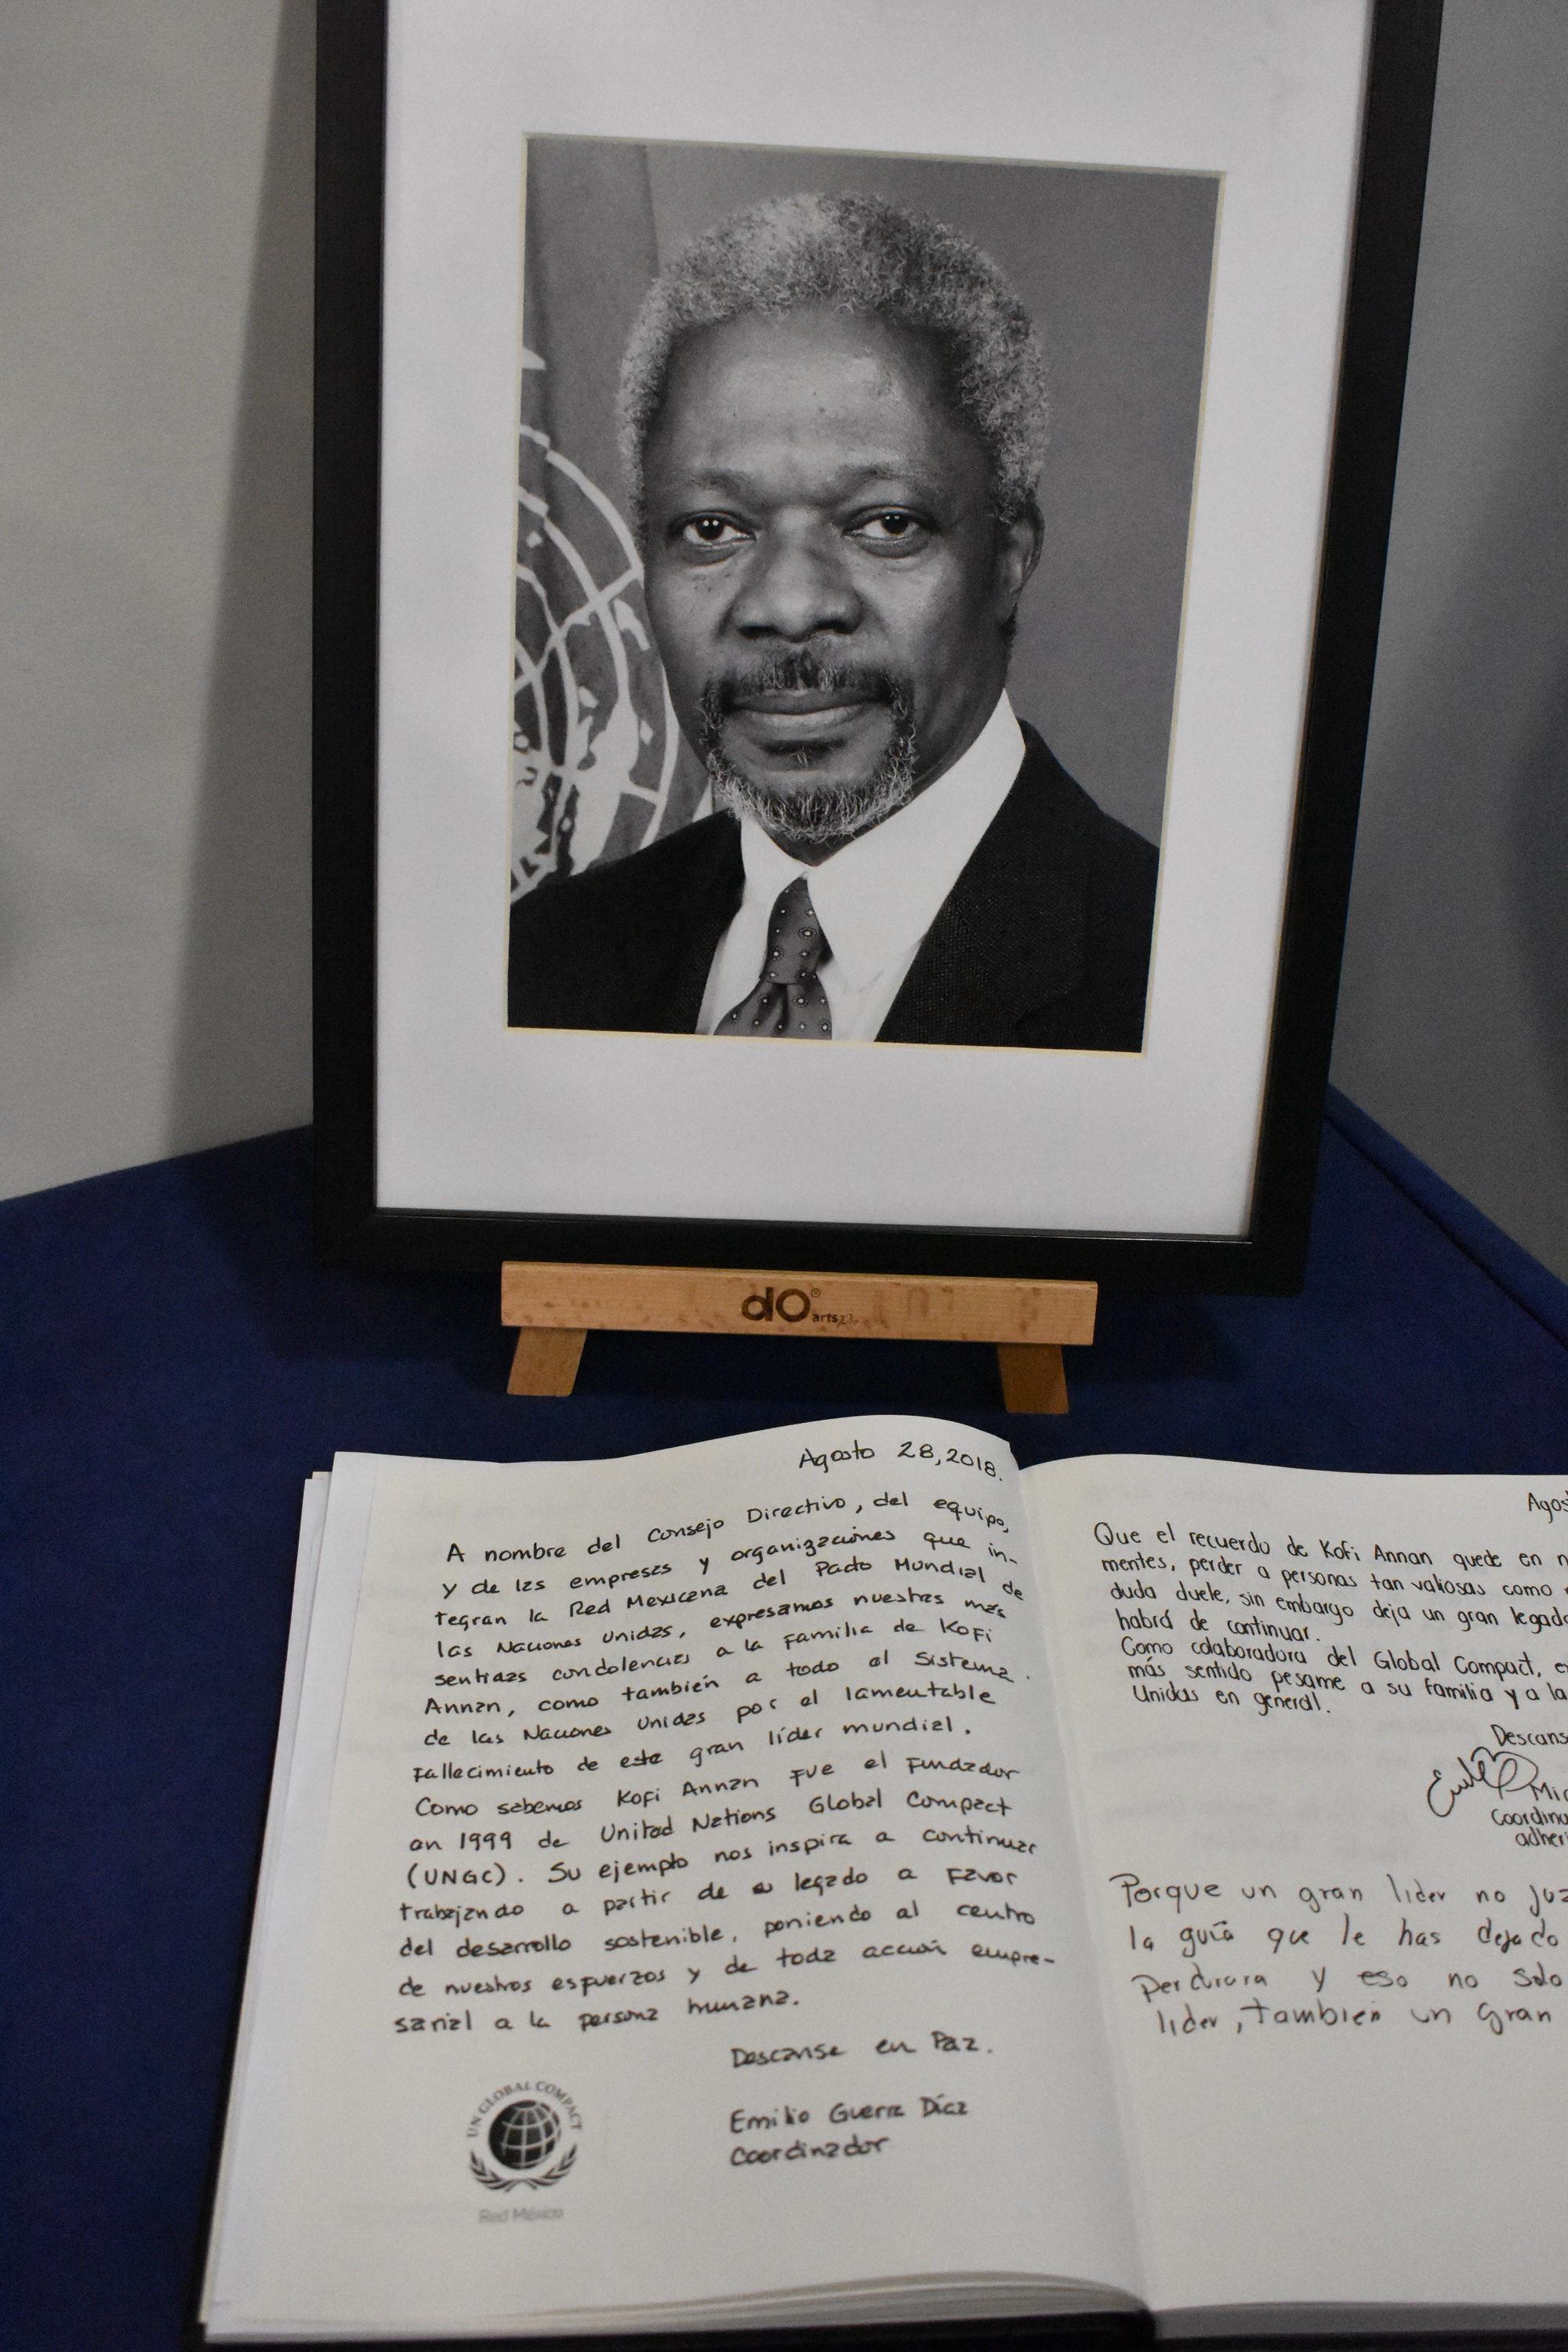 dO®
arts
Agosto 28, 2018.
A nombre del Consejo Directivo, del equipo,
y de las empresas y organizaciones que in-
tegran la Red Mexicana del Pacto Mundial de
las Naciones Unidas, expresamos nuestras más
sentidas condolencias a la familia de Kofi
Annan, como también a todo el Sistema
de las Naciones Unidas por el lamentable
fallecimiento de este gran líder mundial.
Como sabemos Kofi Annan fue el fundador
en 1999 de United Nations Global Compact
(UNGC). Su ejemplo nos inspira a continuar
trabajando a partir de su legado a favor
del desarrollo sostenible, poniendo al centro
de nuestros esfuerzos y de toda acción empre-
sarial a la persona humana.
Descanse en Paz.
Emilio Guerra Díaz
Coordinador
UN GLOBAL COMPACT
Red México
Agos
Que el recuerdo de Kofi Annan quede en n
mentes, perder a personas tan valiosas como
duda duele, sin embargo deja un gran legado
habrá de continuar.
Como colaboradora del Global Compact, e
más sentido pesame a su familia y a la
Unidas en general.
Descans
Mic
Coordina
adheri
Porque un gran lider no juz
la guía que le has dejado
Perdurara y eso no solo
lider, tambien un Gran